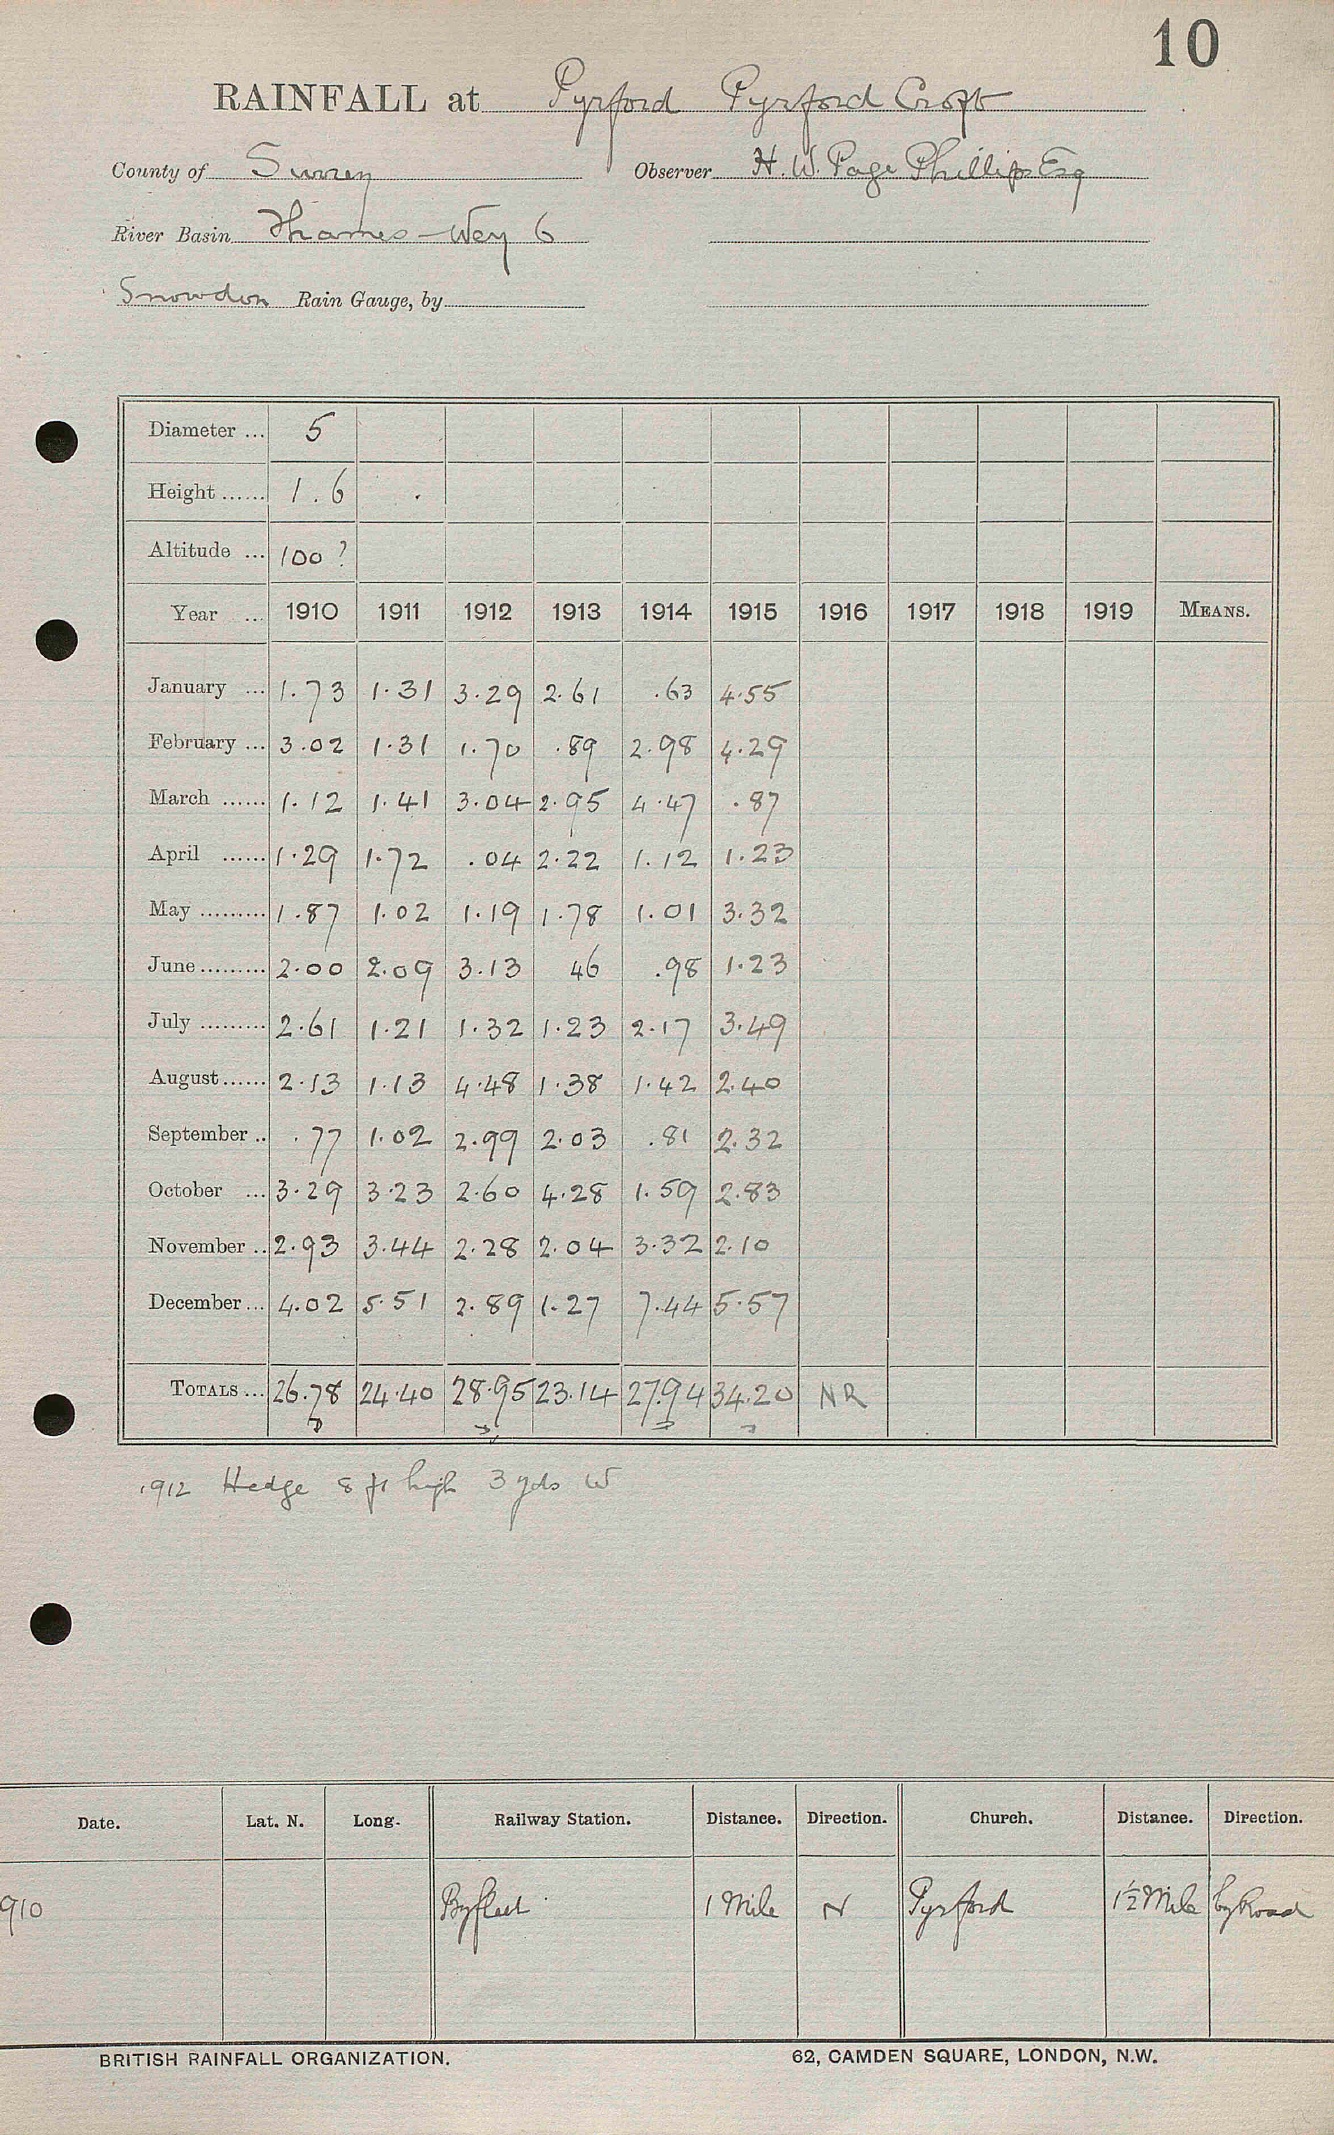 10
RAINFALL at Pyrford Pyrford Croft
County of Surrey Observer H. W. Page Phillips Esq
River Basin Thames - Wey 6
Snowdon Rain Gauge, by
Diameter ... 5
Height ...... 1.6
Altitude ... 100 ?
Year ... 1910 1911 1912 1913 1914 1915 1916 1917 1918 1919 MEANS.
January ... 1.73 1.31 3.29 2.61 .63 4.55
February ... 3.02 1.31 1.70 .89 2.98 4.29
March ...... 1.12 1.41 3.04 2.95 4.47 .87
April ...... 1.29 1.72 .04 2.22 1.12 1.23
May ......... 1.87 1.02 1.19 1.78 1.01 3.32
June ......... 2.00 2.09 3.13 46 .98 1.23
July ......... 2.61 1.21 1.32 1.23 2.17 3.49
August ...... 2.13 1.13 4.48 1.38 1.42 2.40
September .. .77 1.02 2.99 2.03 .81 2.32
October ... 3.29 3.23 2.60 4.28 1.59 2.83
November .. 2.93 3.44 2.28 2.04 3.32 2.10
December ... 4.02 5.51 2.89 1.27 7.44 5.57
TOTALS ... 26.78 24.40 28.95 23.14 27.94 34.20 NR
1912 Hedge 8 ft high 3 yds W
Date. Lat. N. Long. Railway Station. Distance. Direction. Church. Distance. Direction.
910 Byfleet 1 Mile N Pyrford 1½ Mile by Road
BRITISH RAINFALL ORGANIZATION. 62, CAMDEN SQUARE, LONDON, N.W.